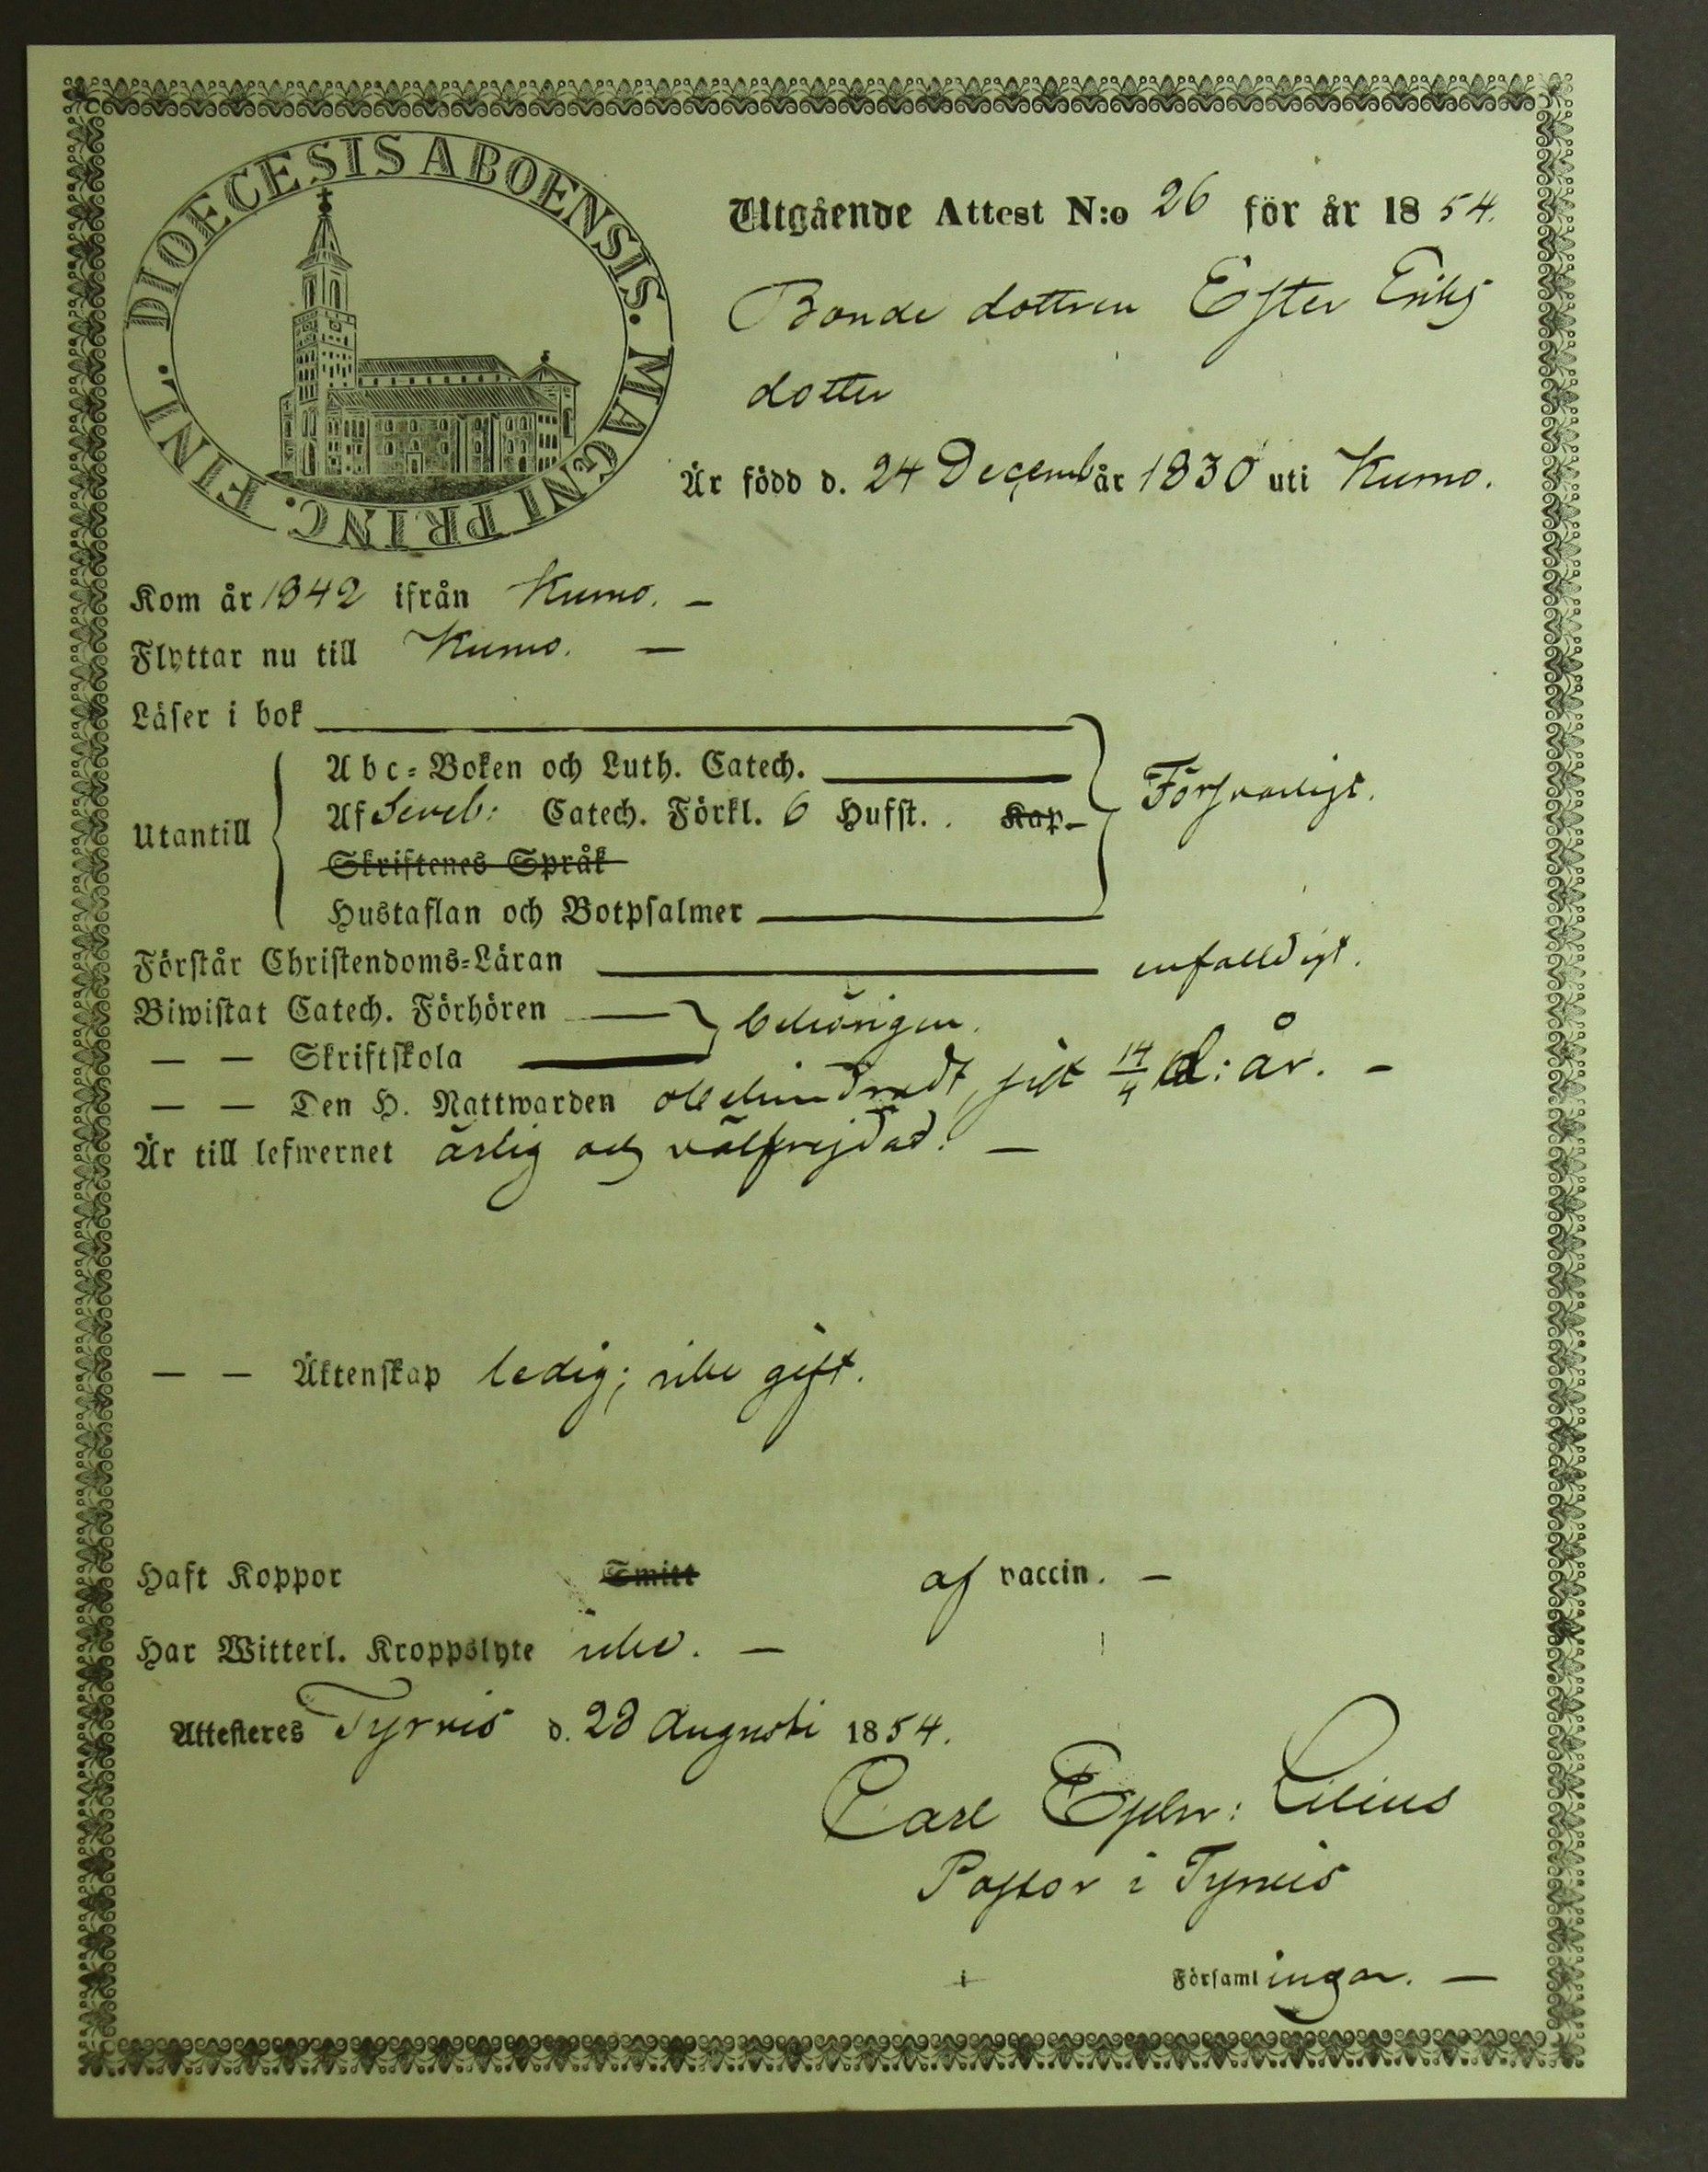 DIOECESIS ABOENSIS. MAGNI PRINC. FINL.
Utgående Attest N:o 26 för år 1854.
Bonde dottren Ester Eriks
dotter
Är född d. 24 Decemb år 1830 uti Kumo.
Kom år 1842 ifrån Kumo. –
Flyttar nu till Kumo. –
Läser i bok
Abc-Boken och Luth. Catech.
Försvarligt.
Utantill
Af Sveb: Catech. Förkl. 6 Hufst. . Kap.
Skriftenes Språk
Hustaflan och Botpsalmer
Förstår Christendoms-Läran enfalldigt.
Biwistat Catech. Förhören
behörigen.
— — Skriftskola
— — Den H. Nattwarden obehindradt, sist 14/4 d: år. –
Är till lefwernet ärlig och välfrejdad. –
— — Äktenskap ledig; icke gift.
Haft Koppor Smitt af vaccin. –
Har Witterl. Kroppslyte icke. –
Attesteres Tyrvis d. 28 Augusti 1854.
Carl Lilius
Pastor i Tyrvis
i Församlingar. –